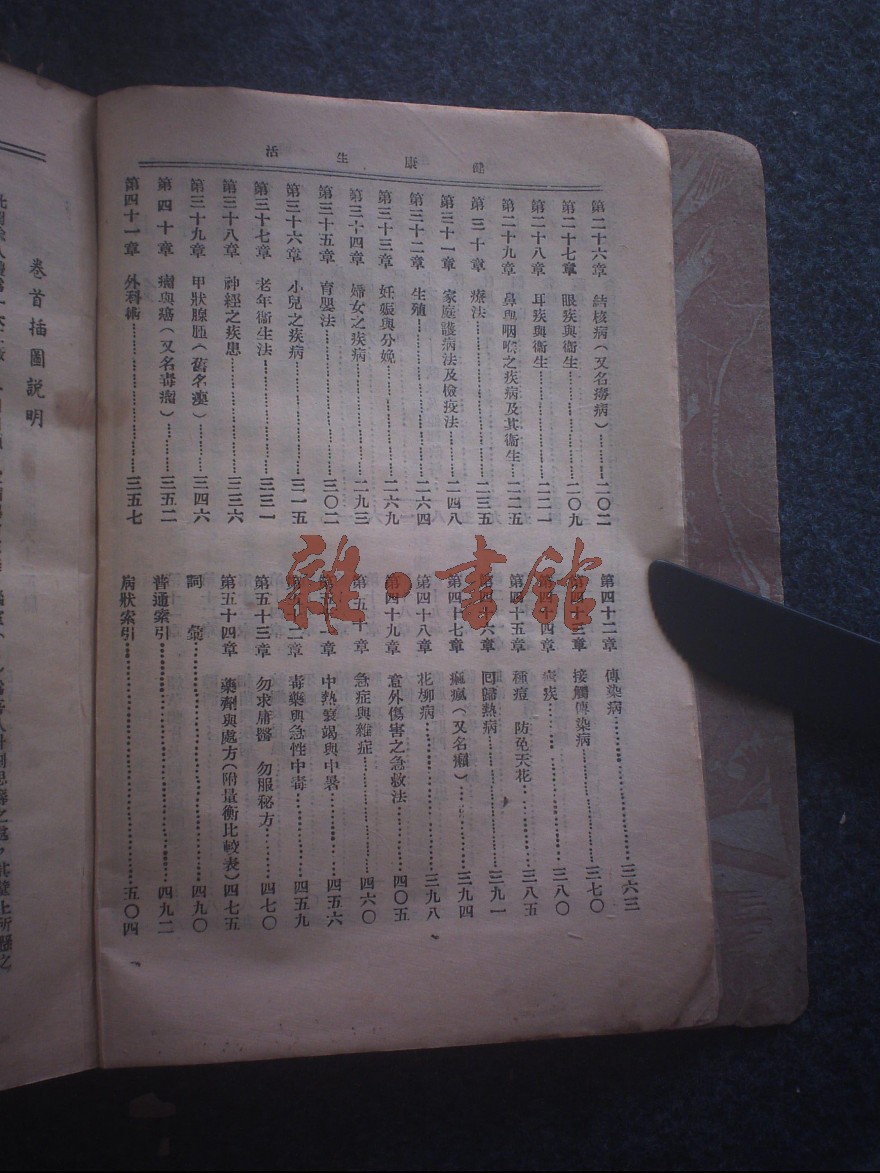 健康生活
第二十六章 結核病（又名癆病）………二〇二
第二十七章 眼疾與衞生………二〇九
第二十八章 耳疾與衞生………二二一
第二十九章 鼻與咽喉之疾病及其衞生………二二五
第三十章 療法………二三五
第三十一章 家庭護病法及檢疫法………二四八
第三十二章 生殖………二六四
第三十三章 妊娠與分娩………二六九
第三十四章 婦女之疾病………二九三
第三十五章 育嬰法………三〇二
第三十六章 小兒之疾病………三一五
第三十七章 老年衞生法………三三一
第三十八章 神經之疾患………三三六
第三十九章 甲狀腺腫（舊名癭）………三四六
第四十章 瘤與癌（又名毒瘤）………三五二
第四十一章 外科術………三五七
第四十二章 傳染病………三六三
第四十三章 接觸傳染病………三七〇
第四十四章 疾………三八〇
第四十五章 種痘 防免天花………三八五
第四十六章 回歸熱病………三九一
第四十七章 痲瘋（又名癩）………三九四
第四十八章 花柳病………三九八
第四十九章 意外傷害之急救法………四〇五
第五十章 急症與雜症………四六〇
第五十一章 中熱衰竭與中暑………四五六
第五十二章 毒藥與急性中毒………四五九
第五十三章 勿求庸醫 勿服秘方………四七〇
第五十四章 藥劑與處方（附量衡比較表）四七五
詞彙………四九〇
普通索引………四九二
病狀索引………五〇四
卷首插圖說明
雜·書館